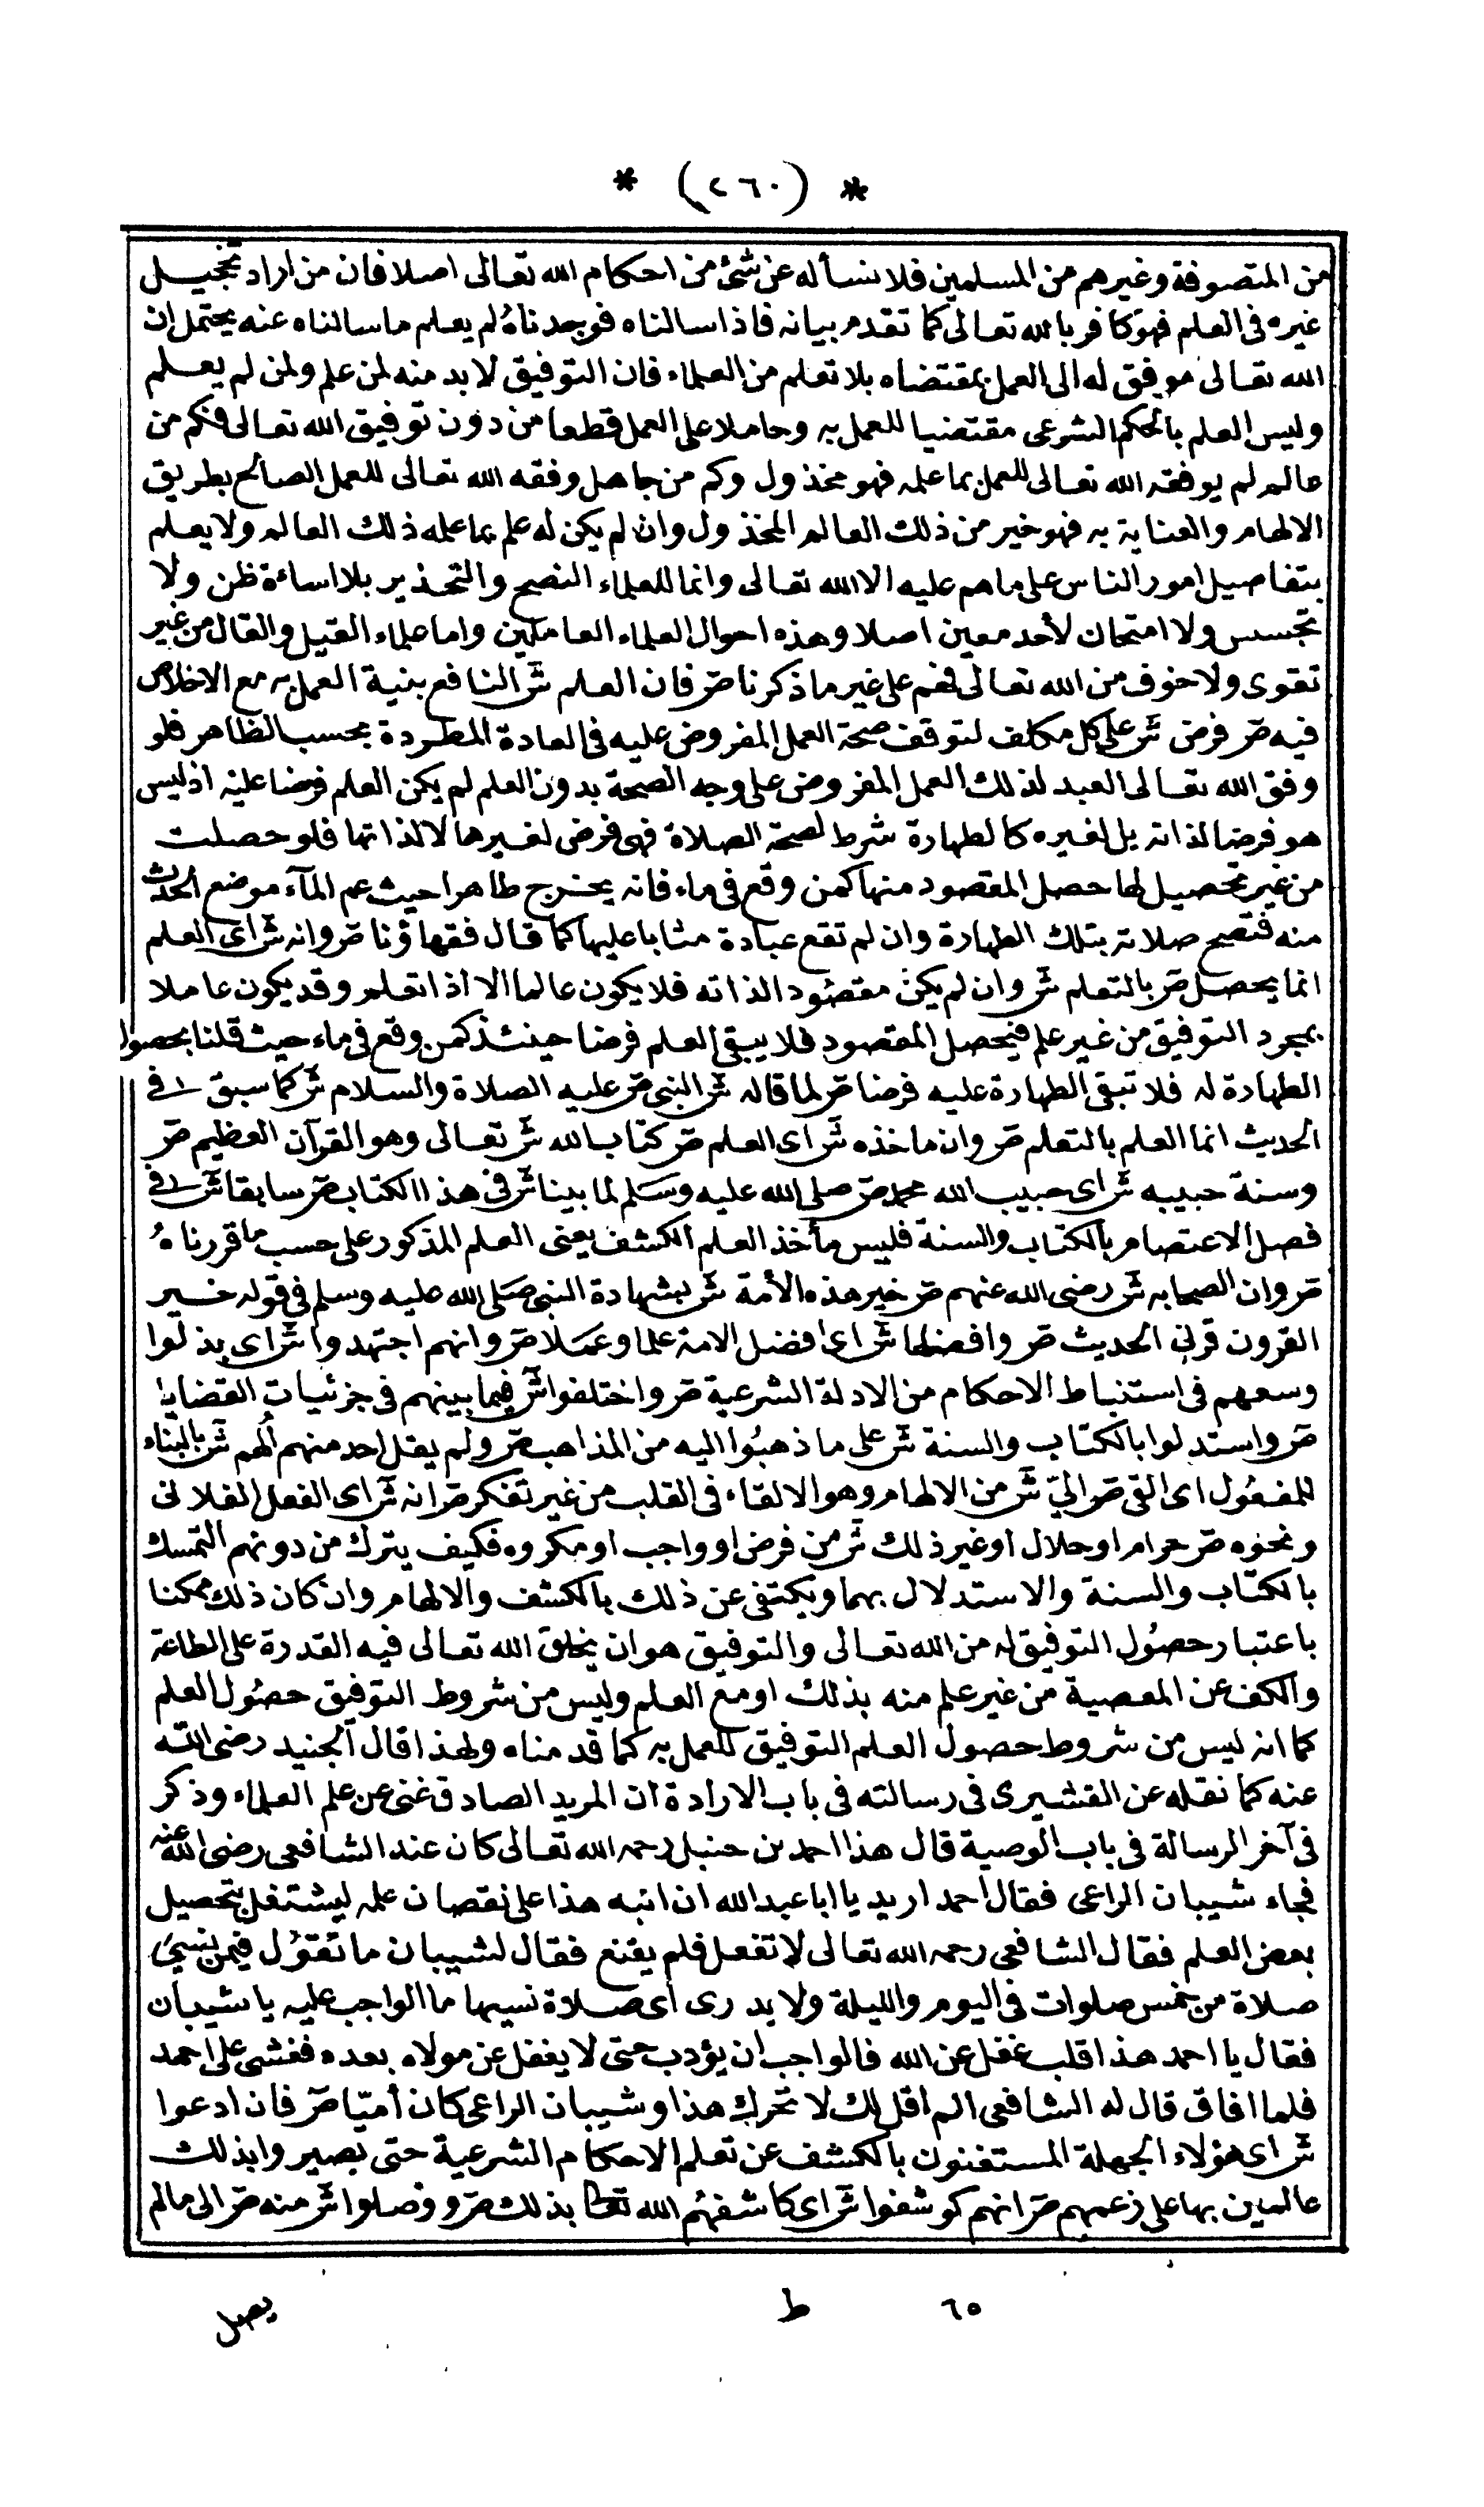 * (٢٦٠) *
من المتصوفة وغيرهم من المسلمين فلا نسأله عن شئ من احكام الله تعالى اصلا فان من اراد تجهيل
غيره فى العلم فهو كافر بالله تعالى كما تقدم بيانه فاذا سالناه فوجدناه لم يعلم ما سالناه عنه يحتمل ان
الله تعالى موفق له الى العمل بمقتضاه بلا تعلم من العلماء فان التوفيق لا بد منه لمن علم ولمن لم يعلم
وليس العلم بالحكم الشرعى مقتضيا للعمل به وحاملا على العمل قطعا من دون توفيق الله تعالى فكم من
عالم لم يوفقه الله تعالى للعمل بما علمه فهو مخذول وكم من جاهل وفقه الله تعالى للعمل الصالح بطريق
الالهام والعناية به فهو خير من ذلك العالم المخذول وان لم يكن له علم بما علمه ذلك العالم ولا يعلم
بتفاصيل امور الناس على ما هم عليه الا الله تعالى وانما للعلماء النصح والتحذير بلا اساءة ظن ولا
تجسس ولا امتحان لأحد معين اصلا وهذه احوال العلماء العاملين واما علماء القيل والقال من غير
تقوى ولا خوف من الله تعالى فهم على غير ما ذكرنا صر فان العلم شر النافع بنية العمل به مع الاخلاص
فيه صر فرض شر على كل مكلف لتوقف صحة العمل المفروض عليه فى العادة المطردة بحسب الظاهر فلو
وفق الله تعالى العبد لذلك العمل المفروض على وجه الصحة بدون العلم لم يكن العلم فرضا عليه اذ ليس
هو فرضا لذاته بل لغيره كالطهارة شرط لصحة الصلاة فهى فرض لغيرها لا لذاتها فلو حصلت
من غير تحصيل لها حصل المقصود منها كمن وقع فى ماء فانه يخرج طاهرا حيث عم المآء موضع الحدث
منه فتصح صلاته بتلك الطهارة وان لم تقع عبادة مثابا عليها كما قال فقهاؤنا صر وانه شر اى العلم
انما يحصل صر بالتعلم شر وان لم يكن مقصودا لذاته فلا يكون عالما الا اذا تعلم وقد يكون عاملا
بمجرد التوفيق من غير علم فيحصل المقصود فلا يبقى العلم فرضا حينئذ كمن وقع فى ماء حيث قلنا بحصول
الطهارة له فلا تبقى الطهارة عليه فرضا صر لما قاله شر النبى صر عليه الصلاة والسلام شر كما سبق فى
الحديث انما العلم بالتعلم صر وان ماخذه شر اى العلم صر كتاب الله شر تعالى وهو القرآن العظيم صر
وسنة حبيبه شر اى حبيب الله محمد صر صلى الله عليه وسلم لما بينا شر فى هذا الكتاب صر سابقا شر فى
فصل الاعتصام بالكتاب والسنة فليس مأخذ العلم الكشف يعنى العلم المذكور على حسب ما قررناه
صر وان الصحابه شر رضى الله عنهم صر خير هذه الأمة شر بشهادة النبى صلى الله عليه وسلم فى قوله خير
القرون قرنى الحديث صر وافضلها شر اى افضل الامة علما وعملا صر وانهم اجتهدوا شر اى بذلوا
وسعهم فى استنباط الاحكام من الادلة الشرعية صر واختلفوا شر فيما بينهم فى جزئيات القضايا
صر واستدلوا بالكتاب والسنة شر على ما ذهبوا اليه من المذاهب صر ولم يقل احد منهم ألهم شر بالبناء
للمفعول اى القى صر الىّ شر من الالهام وهو الالقاء فى القلب من غير تفكر صر انه شر اى الفعل الفلانى
ونحوه صر حرام او حلال او غير ذلك شر من فرض او واجب او مكروه فكيف يترك من دونهم التمسك
بالكتاب والسنة والاستدلال بهما ويكتفى عن ذلك بالكشف والالهام وان كان ذلك ممكنا
باعتبار حصول التوفيق له من الله تعالى والتوفيق هو ان يخلق الله تعالى فيه القدرة على الطاعة
والكف عن المعصية من غير علم منه بذلك او مع العلم وليس من شروط التوفيق حصول العلم
كما انه ليس من شروط حصول العلم التوفيق للعمل به كما قدمناه ولهذا قال الجنيد رضى الله
عنه كما نقله عن القشيرى فى رسالته فى باب الارادة ان المريد الصادق غنى عن علم العلماء وذكر
فى آخر الرسالة فى باب الوصية قال هذا احمد بن حنبل رحمه الله تعالى كان عند الشافعى رضى الله عنه
فجاء شيبان الراعى فقال احمد اريد يا ابا عبد الله ان انبه هذا على نقصان علمه ليشتغل بتحصيل
بعض العلم فقال الشافعى رحمه الله تعالى لا تفعل فلم يقنع فقال لشيبان ما تقول فيمن نسى
صلاة من خمس صلوات فى اليوم والليلة ولا يدرى اى صلاة نسيها ما الواجب عليه يا شيبان
فقال يا احمد هذا قلب غفل عن الله فالواجب ان يؤدب حتى لا يغفل عن مولاه بعده فغشى على احمد
فلما افاق قال له الشافعى الم اقل لك لا تحرك هذا وشيبان الراعى كان أميّا صر فان ادعوا
شر اى هؤلاء الجهلة المستغنون بالكشف عن تعلم الاحكام الشرعية حتى يصيروا بذلك
عالمين بها على زعمهم صر انهم كوشفوا شر اى كاشفهم الله تعا بذلك صر ووصلوا شر منه صر الى ما لم
٦٥ ط يصل